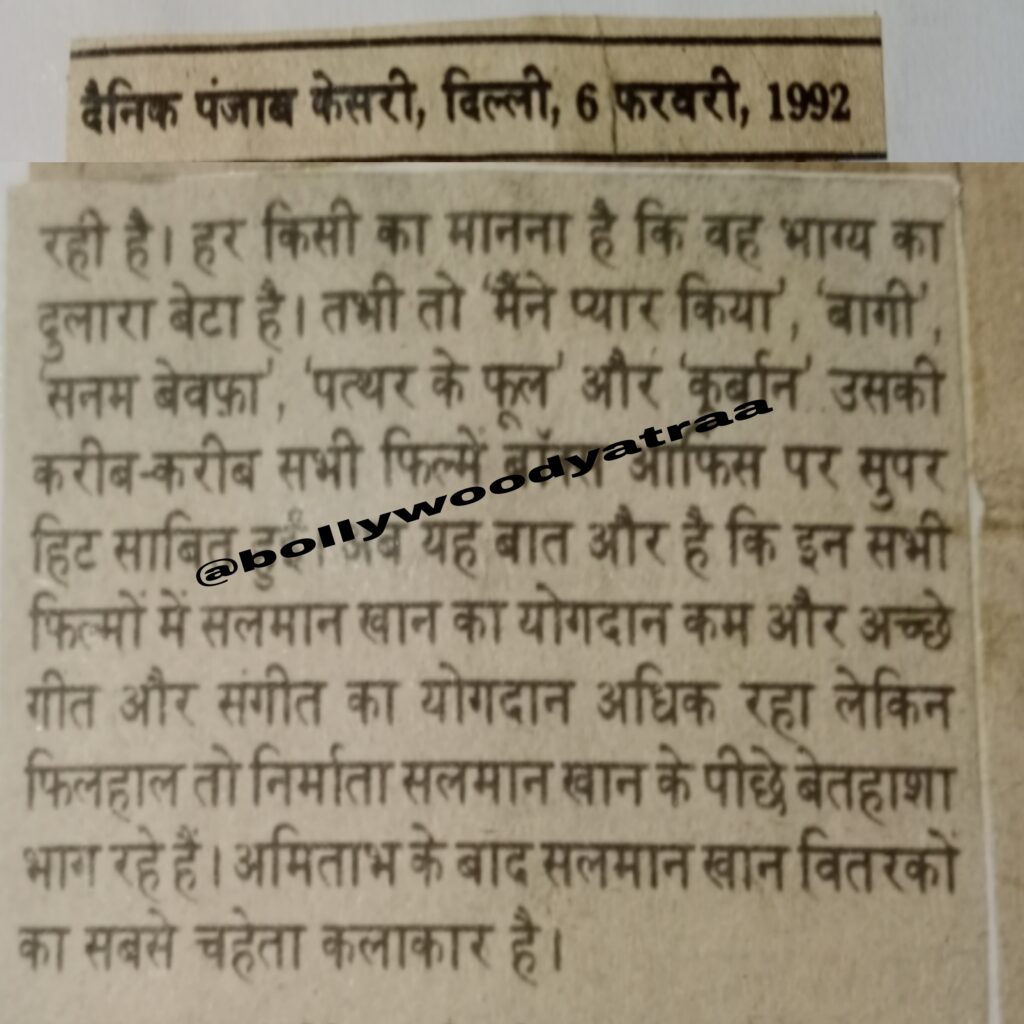 दैनिक पंजाब केसरी, दिल्ली, 6 फरवरी, 1992
रही है। हर किसी का मानना है कि वह भाग्य का
दुलारा बेटा है। तभी तो 'मैंने प्यार किया', 'बागी',
'सनम बेवफ़ा', 'पत्थर के फूल' और 'कुर्बान' उसकी
करीब-करीब सभी फिल्में बॉक्स ऑफिस पर सुपर
हिट साबित हुईं। अब यह बात और है कि इन सभी
फिल्मों में सलमान खान का योगदान कम और अच्छे
गीत और संगीत का योगदान अधिक रहा लेकिन
फिलहाल तो निर्माता सलमान खान के पीछे बेतहाशा
भाग रहे हैं। अमिताभ के बाद सलमान खान वितरकों
का सबसे चहेता कलाकार है।
@bollywoodyatraa